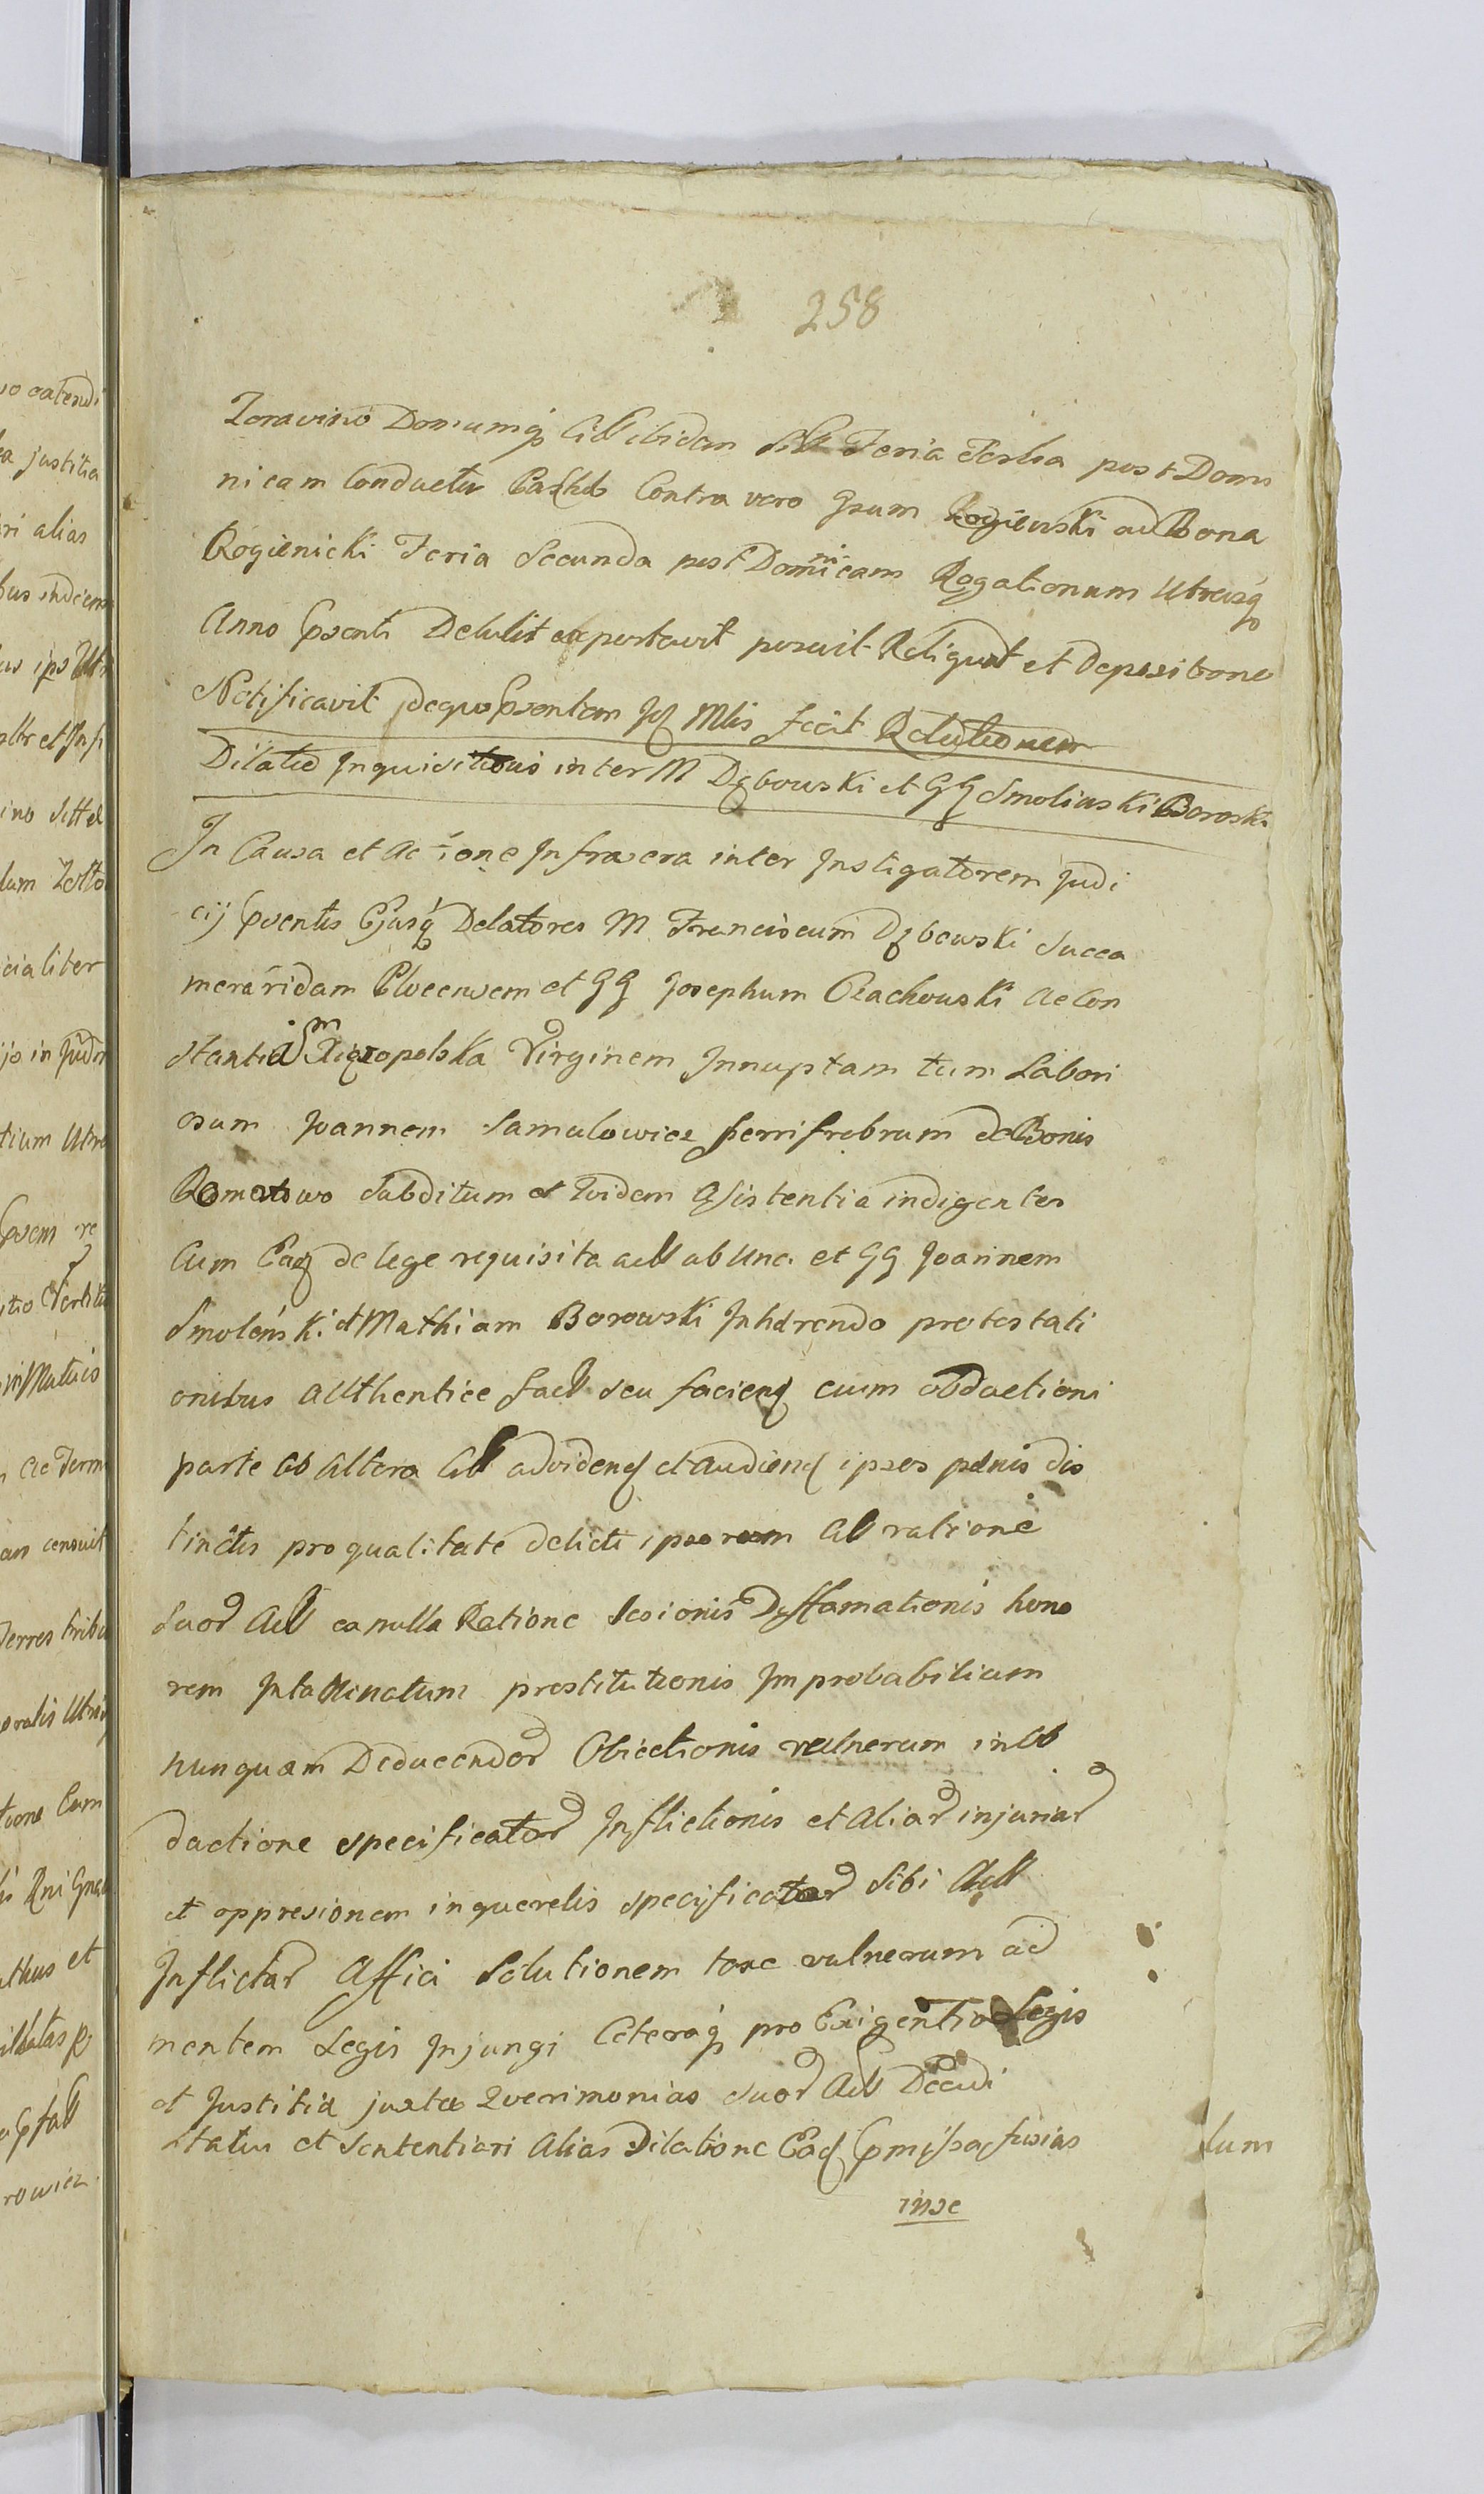 258
Zoravino Domumq Citt ibidem Sitt Feria Tertia post Domi
nicam Conductus Paschts Contra vero Gsum Rogienski ad Bona
Rogienicki Feria Secunda post Dominicam Rogationum Utrasq
Anno Psenti Detulit exportavit posuit Reliquit et Depositione
Notificavit deque Psentem Jd Mlis fecit Relationem
Dilatio Inquisitionis inter M Dębowski et GG Smolinski Boroski
In Causa et Actione Infrascra inter Instigatorem Judi
cij Psentis Ejusq Delatores M Franciscum Dębowski Succa
meraridam Plocensem et GG Josephum Czachowski ac Con
stantiam Virginem Innuptam tum Labori
osum Joannem Samulowicz ferrifabrum de Bonis
Romatowo Subditum et Ividem Asistentia indigentes
Cum Eaq de lege requisita actt ab Una et GG Joannem
Smolenski et Mathiam Borowski Inhærendo protestati
onibus authentice fact seu faciend cum obductioni
parte ab altera Citt ad vidend et audiend ipsos pænis dis
tinctis pro qualitate delicti ipsorum Citt ratione
Suor Actt ea nulla Ratione Lesionis Dyffamationis hono
rem Intaminatum prostitutionis Improbabilium
nunquam Deducendor Obiectionis vulnerum in Ob
ductione specificator Inflictionis et aliar injuriar
et oppresionem in querelis specificatar Sibi Actt
Inflictar Affici Solutionem toxe vulnerum ad
mentem Legis Injungi Ceteraq pro Exigentia Legis
et Justitia juxta Querimonias suor Actt Decidi
et Sententiari Alias Dilatione Eaq Pmissa fusius
inse